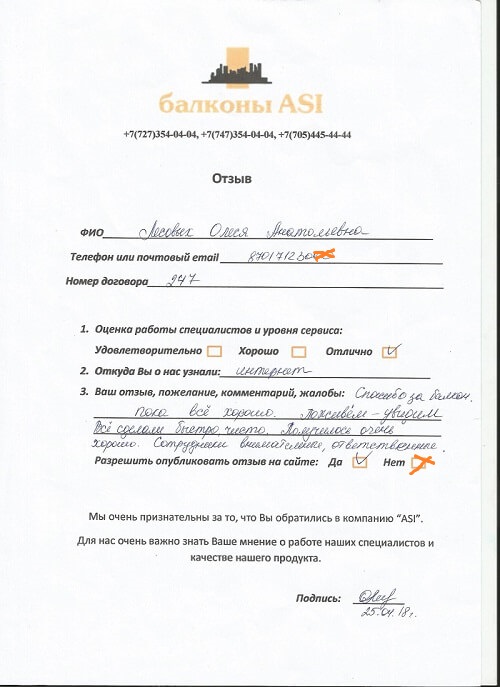 балконы ASI
+7(727)354-04-04, +7(747)354-04-04, +7(705)445-44-44
Отзыв
ФИО Лесовых Олеся Анатольевна
Телефон или почтовый email 8701712
Номер договора 247
1. Оценка работы специалистов и уровня сервиса:
Удовлетворительно Хорошо Отлично
2. Откуда Вы о нас узнали: интернет
3. Ваш отзыв, пожелание, комментарий, жалобы: Спасибо за балкон.
Пока всё хорошо. Поживём - увидим
Всё сделали быстро, чисто. Получилось очень
хорошо. Сотрудники внимательные, ответственные.
Разрешить опубликовать отзыв на сайте: Да Нет
Мы очень признательны за то, что Вы обратились в компанию “ASI”.
Для нас очень важно знать Ваше мнение о работе наших специалистов и
качестве нашего продукта.
Подпись:
25.04.18г.